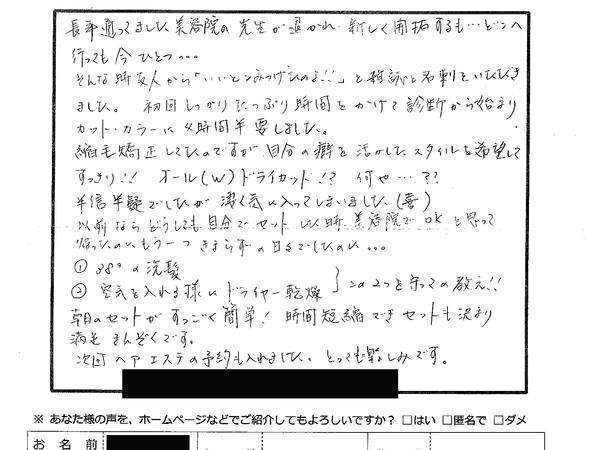 長年通ってました美容院の先生が退かれ、新しく開拓するも…どこへ
行っても今ひとつ…
そんな時友人から「いいとこみつけたのよ!!」と雑誌と名刺をいただき
ました。初回しっかりたっぷり時間をかけて診断から始まり
カット・カラーに4時間半要しました。
縮毛矯正してたのですが自分の癖を活かしたスタイルを希望して
すっきり!! オール(W)ドライカット!? 何や…??
半信半疑でしたが凄く気に入ってしまいました(喜)
以前ならどうしても自分でセットしに時、美容院でOKと思って
帰ったのにもう一つきまらずの日々でしたのに…
① 38°の洗髪
② 空気を入れる様にドライヤー乾燥 } この2つを守っての教え!!
朝のセットがすっごく簡単! 時間短縮できセットも決まり
満足まんぞくです。
次回ヘアエステの予約も入れました。とっても楽しみです。
※ あなた様の声を、ホームページなどでご紹介してもよろしいですか? □はい □匿名で □ダメ
お名前